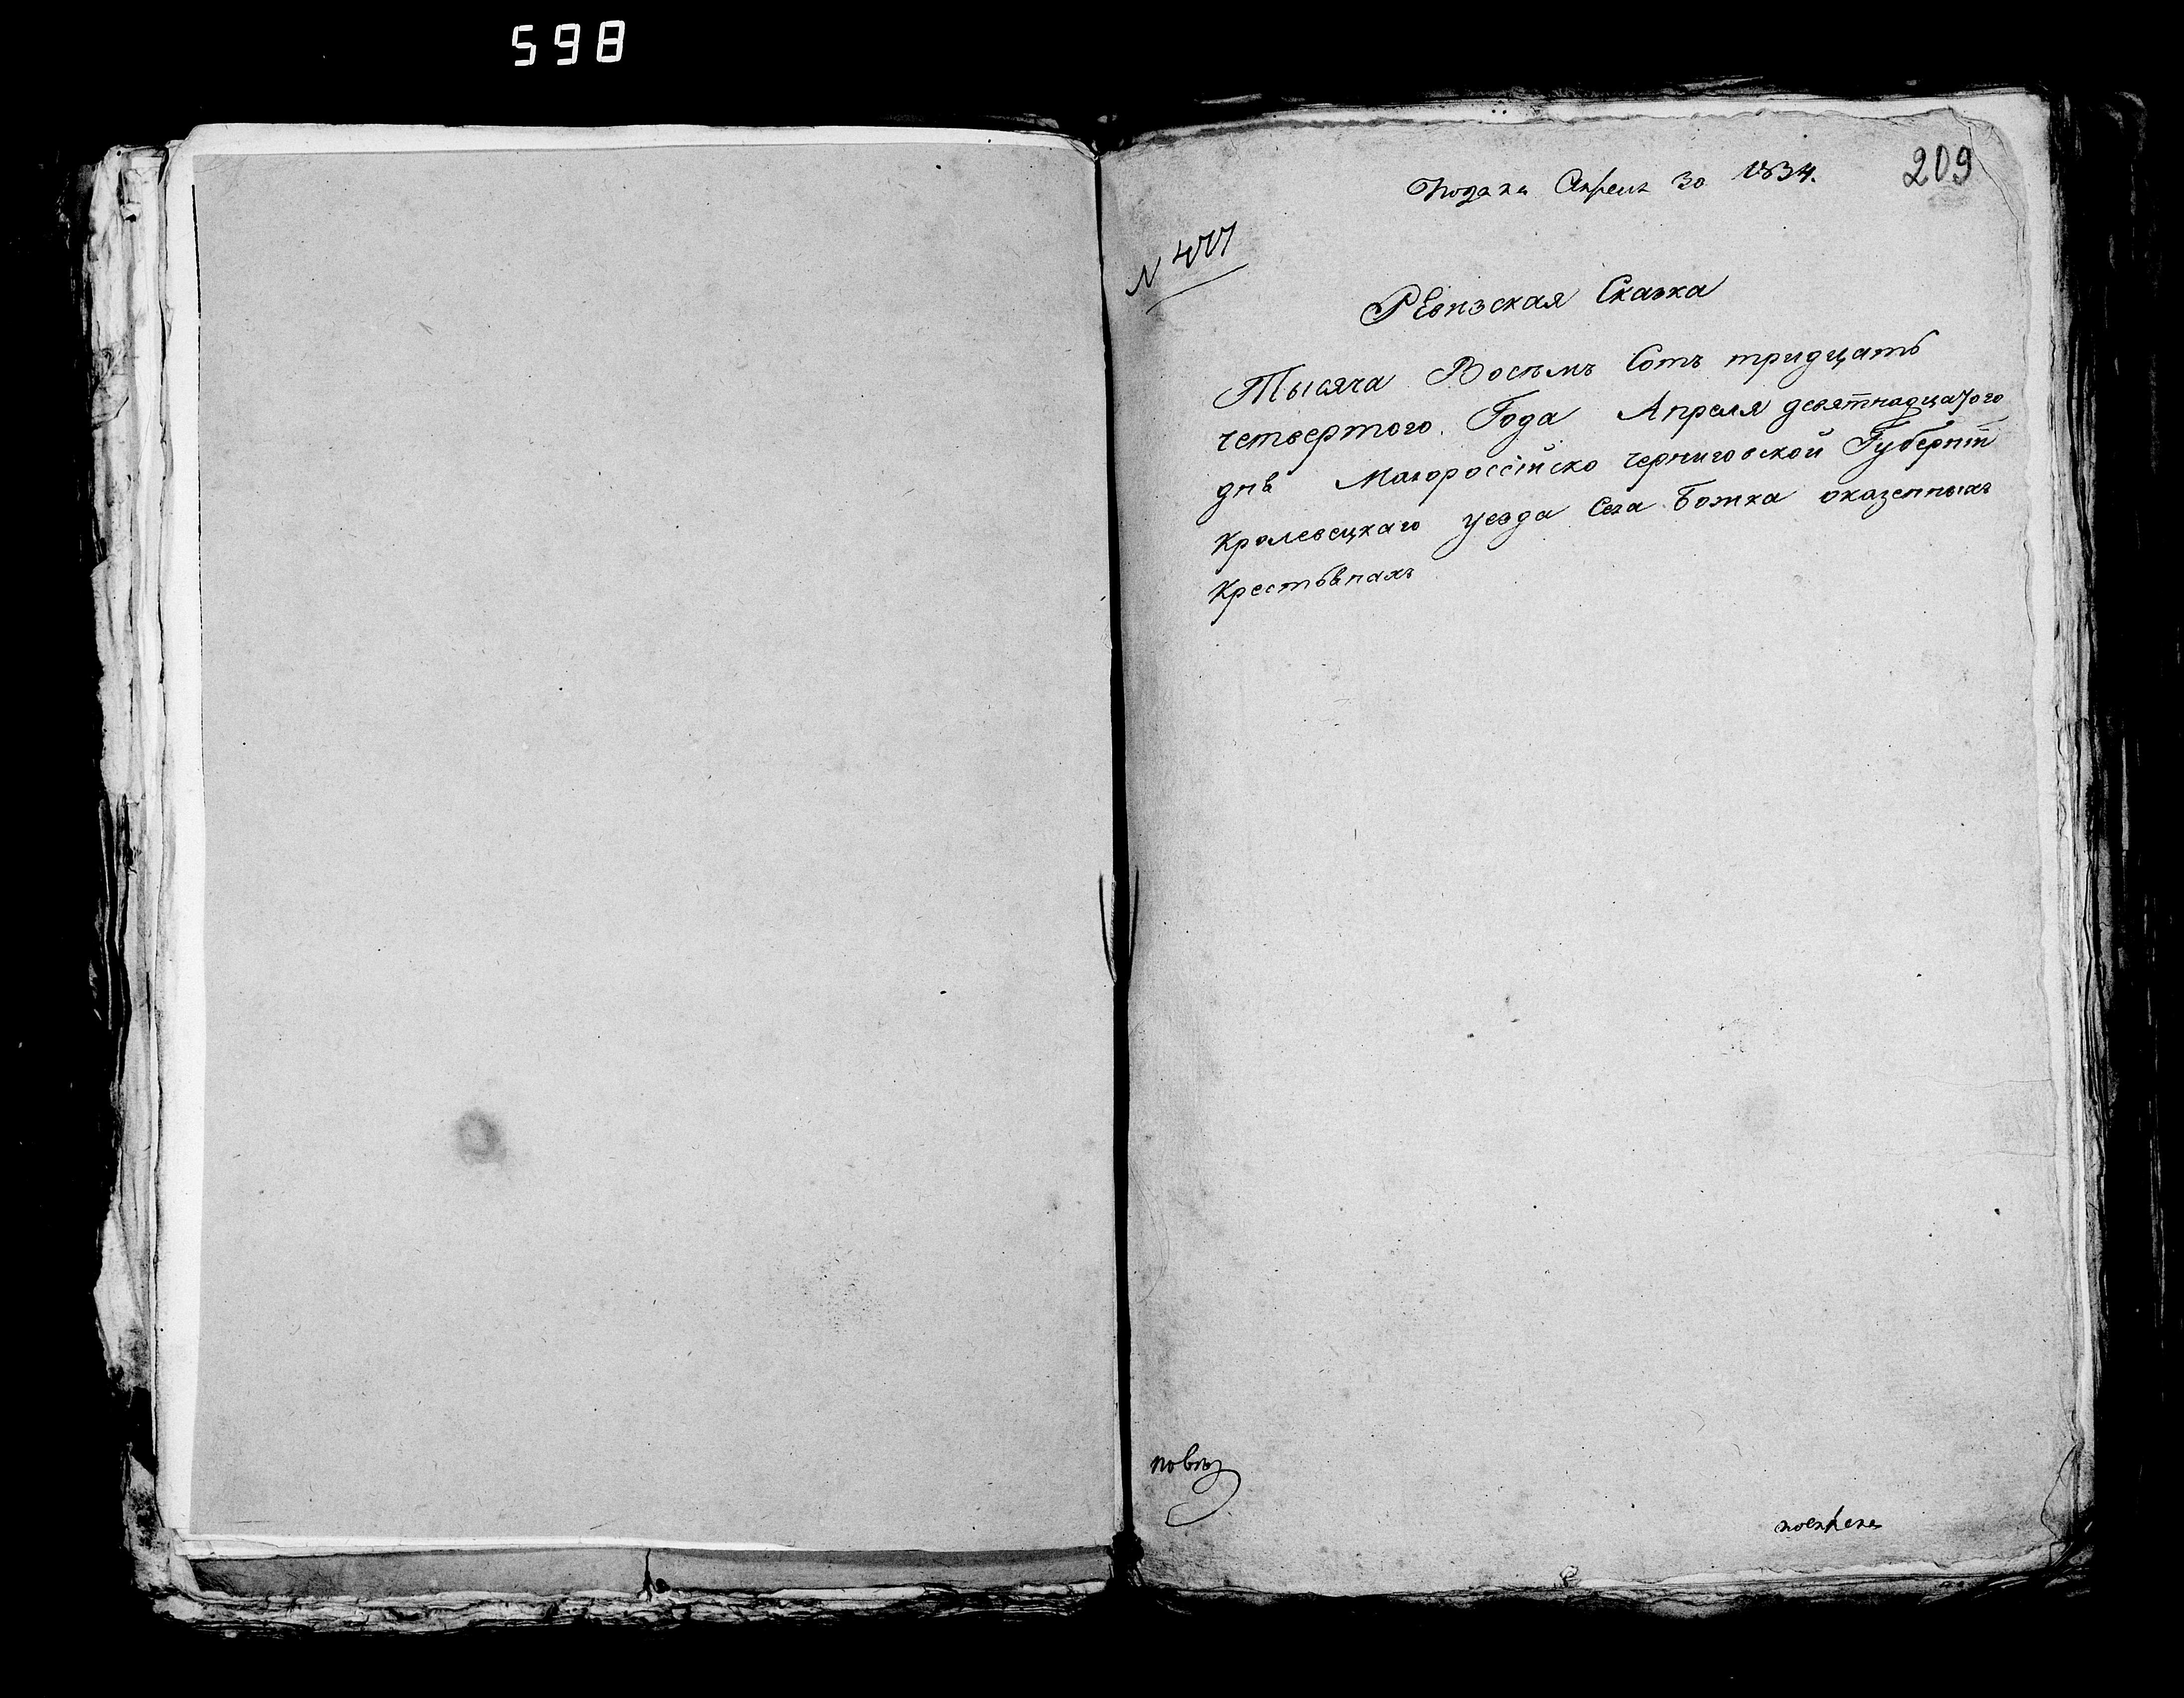 598
209
Подана Апреля 30 1834.
N 477
Ревизская Сказка
Тысяча Восемъ Сотъ тридцать
четвертого Года Апреля девятнадцатого
дня Малороссійско Черниговской Губерніи
Кролевецкаго уезда Села Божка оказенныхъ
Крестьянахъ